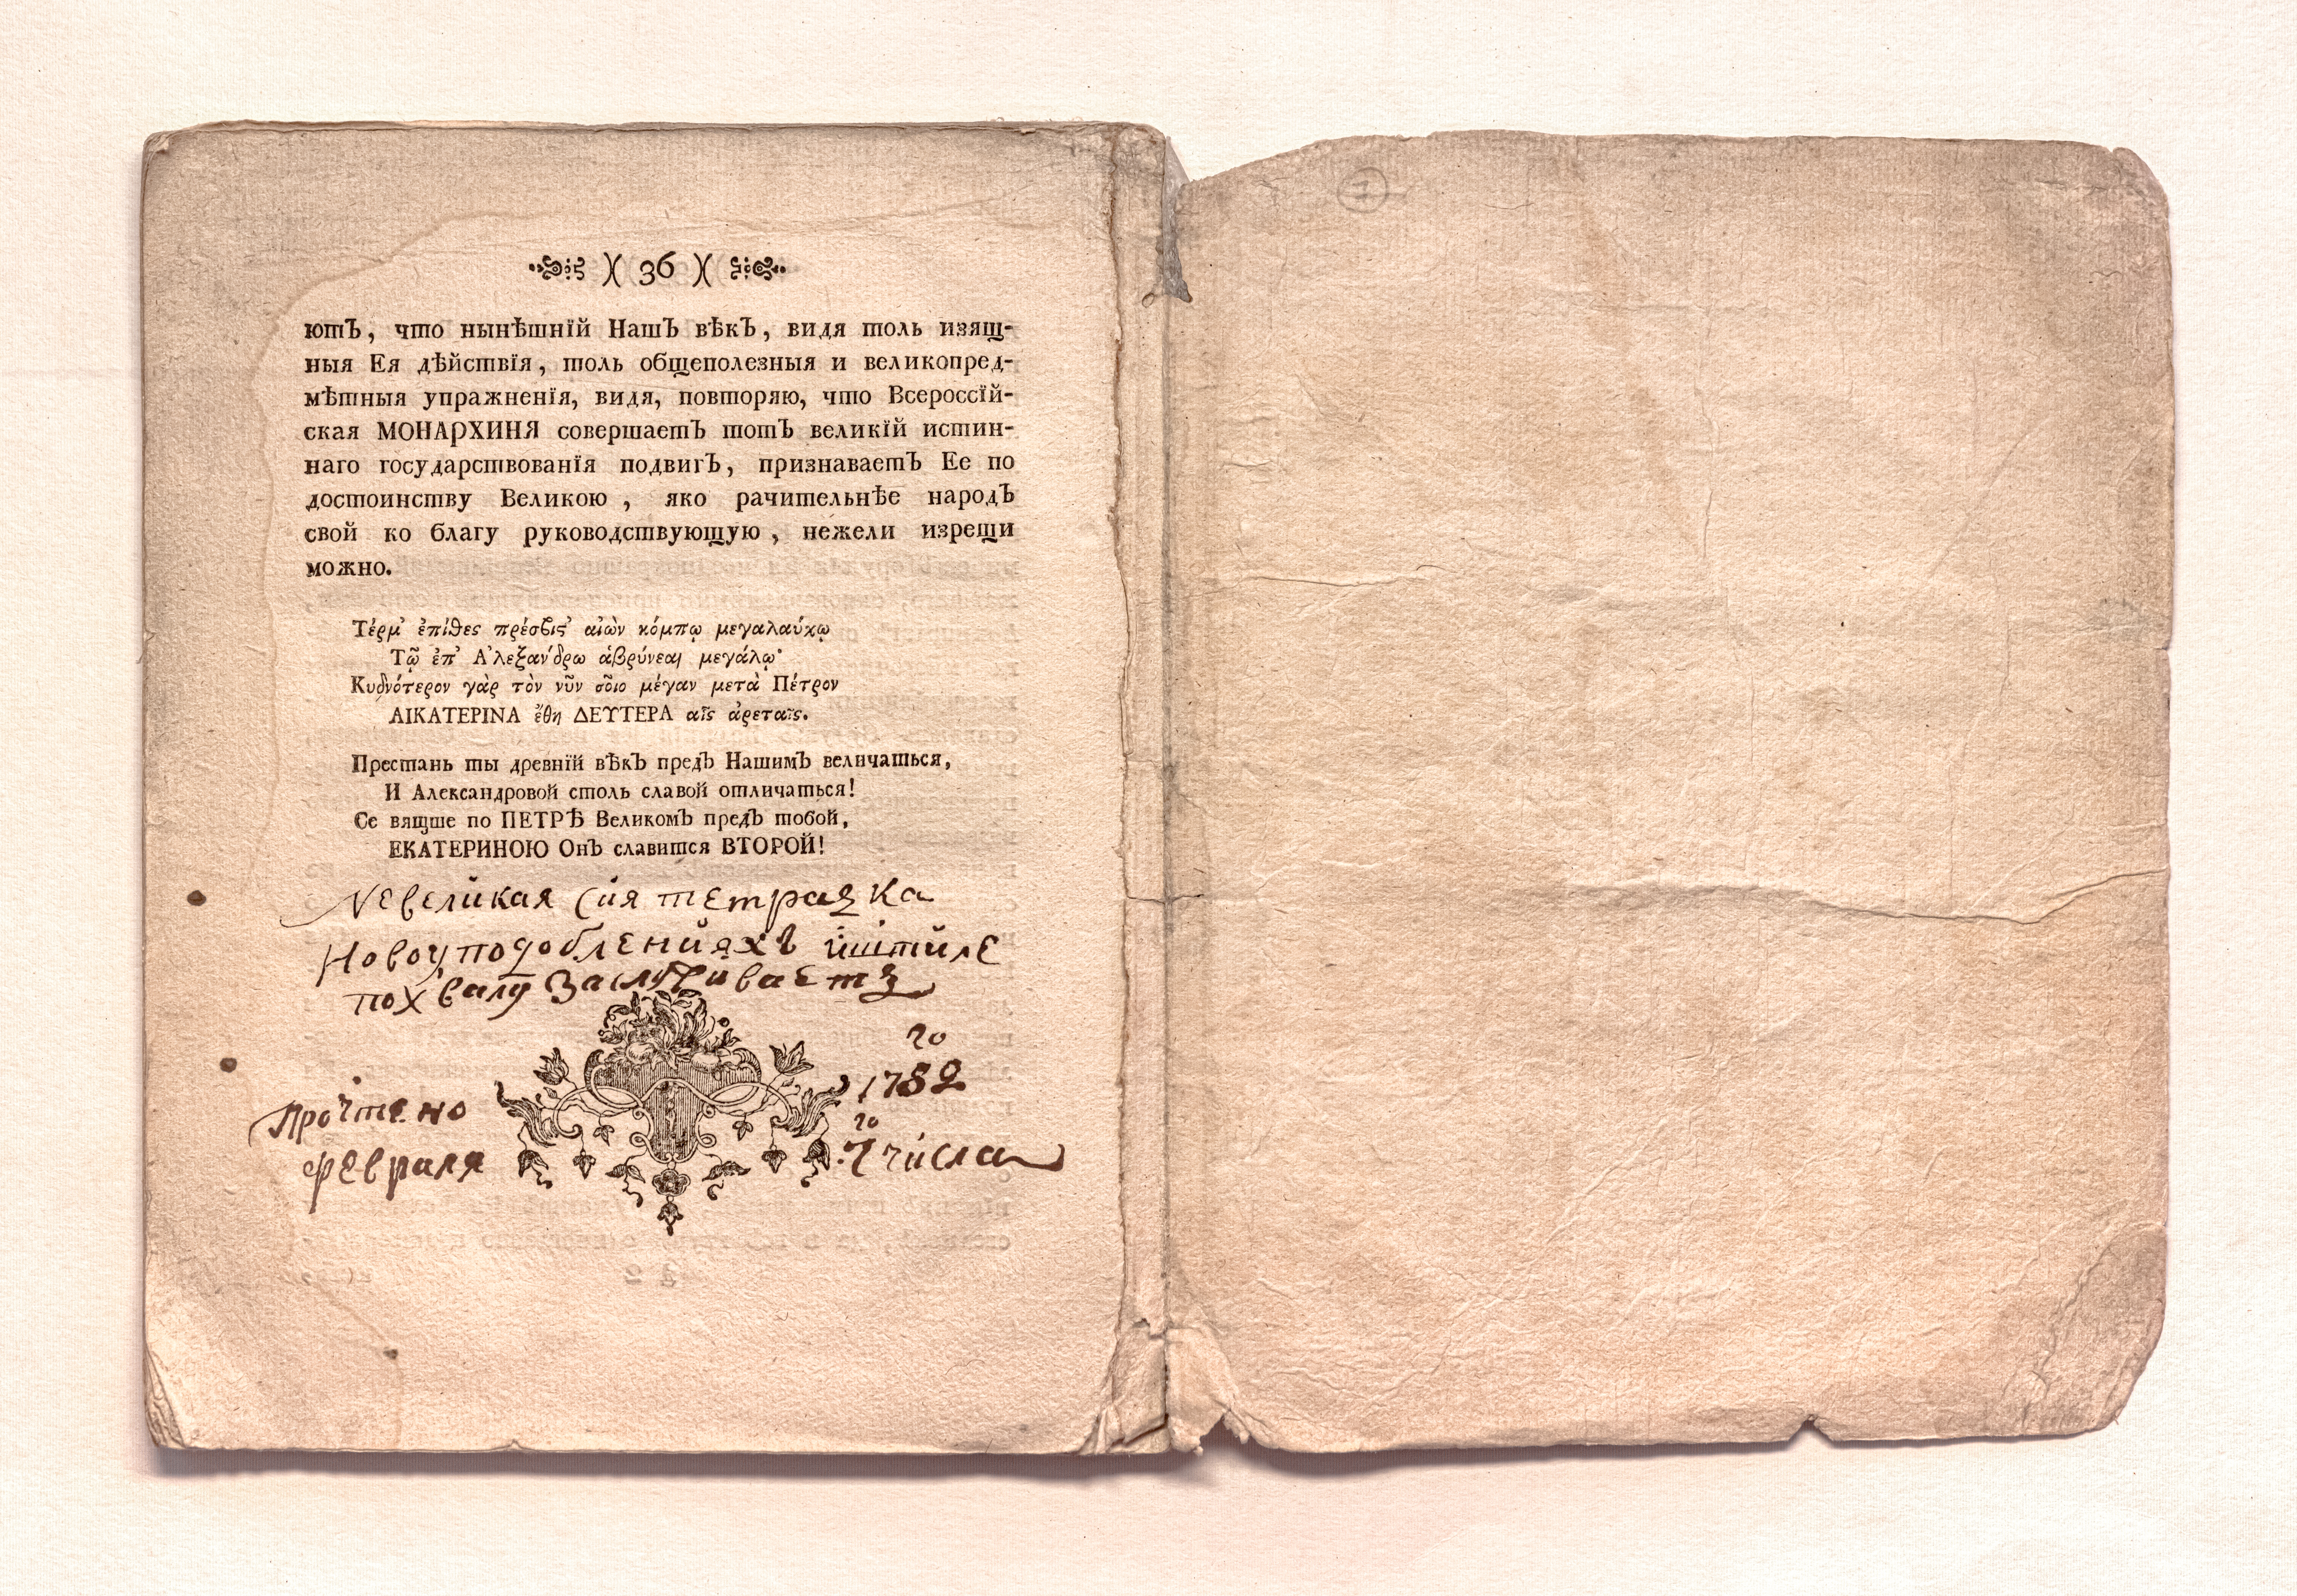 )( 36 )(
ютЪ, что нынѣшнїй НашЪ вѣкЪ, видя толь изящ-
ныя Ея дѣйствїя, толь общеполезныя и великопред-
мѣтныя упражненїя, видя, повторяю, что Всероссїй-
ская МОНАРХИНЯ совершаетЪ тотЪ великїй истин-
наго государствованїя подвигЪ, признаваетЪ Ее по
достоинству Великою, яко рачительнѣе народЪ
свой ко благу руководствующую, нежели изрещи
можно.
Τέρμ᾽ ἐπίθες πρέσβις᾽ αἰὼν κόμπῳ μεγαλαύχῳ
Τῷ ἐπ᾽ Ἀλεξάνδρω ἁβρύνεαι μεγάλῳ·
Κυδνότερον γὰρ τὸν νῦν σοῖο μέγαν μετὰ Πέτρον
ΑΙΚΑΤΕΡΙΝΑ ἔθη ΔΕΥΤΕΡΑ αἷς ἀρεταῖς.
Престань ты древнїй вѣкЪ предЪ НашимЪ величаться,
И Александровой столь славой отличаться!
Се вящше по ПЕТРѢ ВеликомЪ предЪ тобой,
ЕКАТЕРИНОЮ ОнЪ славится ВТОРОЙ!
Невеликая сия тетрадка
Новоуподобленияхъ иштиле
похвалу заслуживаетъ
го
Прочтено 1782
го
февраля 7 числа